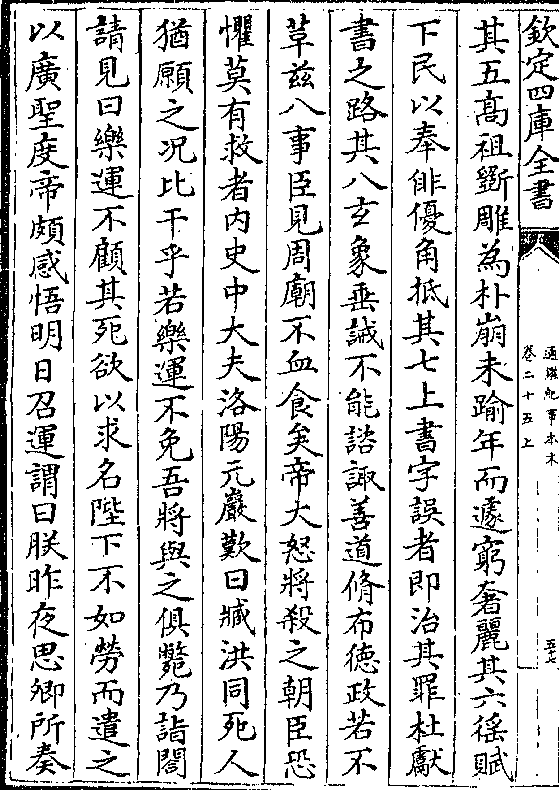 欽定四庫全書
通鑑紀事本末
卷二十五上
其五高祖斵雕為朴崩未踰年而遽窮奢麗其六徭賦
下民以奉俳優角抵其七上書字誤者即治其罪杜獻
書之路其八玄象垂誡不能諮諏善道脩布德政若不
革兹八事臣見周廟不血食矣帝大怒將殺之朝臣恐
懼莫有救者内史中大夫洛陽元巖歎曰臧洪同死人
猶願之况比干乎若樂運不免吾將與之俱斃乃詣閤
請見曰樂運不顧其死欲以求名陛下不如勞而遣之
以廣聖度帝頗感悟明日召運謂曰朕昨夜思卿所奏